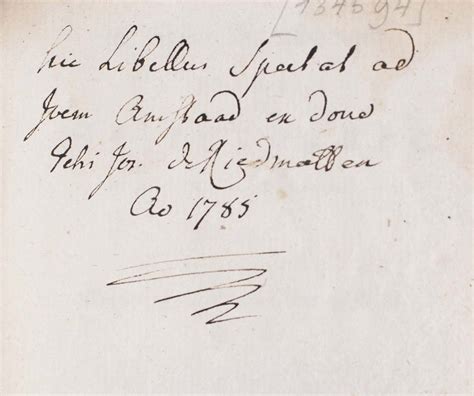 [134594]
hic Libellus Spectat ad
Jvem Amstaad ex dono
Jchi Jos. de Riedmatten
Ao 1785